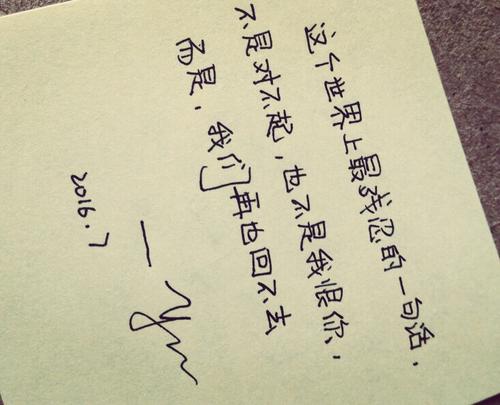 这个世界上最残忍的一句话，
不是对不起，也不是我恨你，
而是，我们再也回不去
— Ym
2016.7